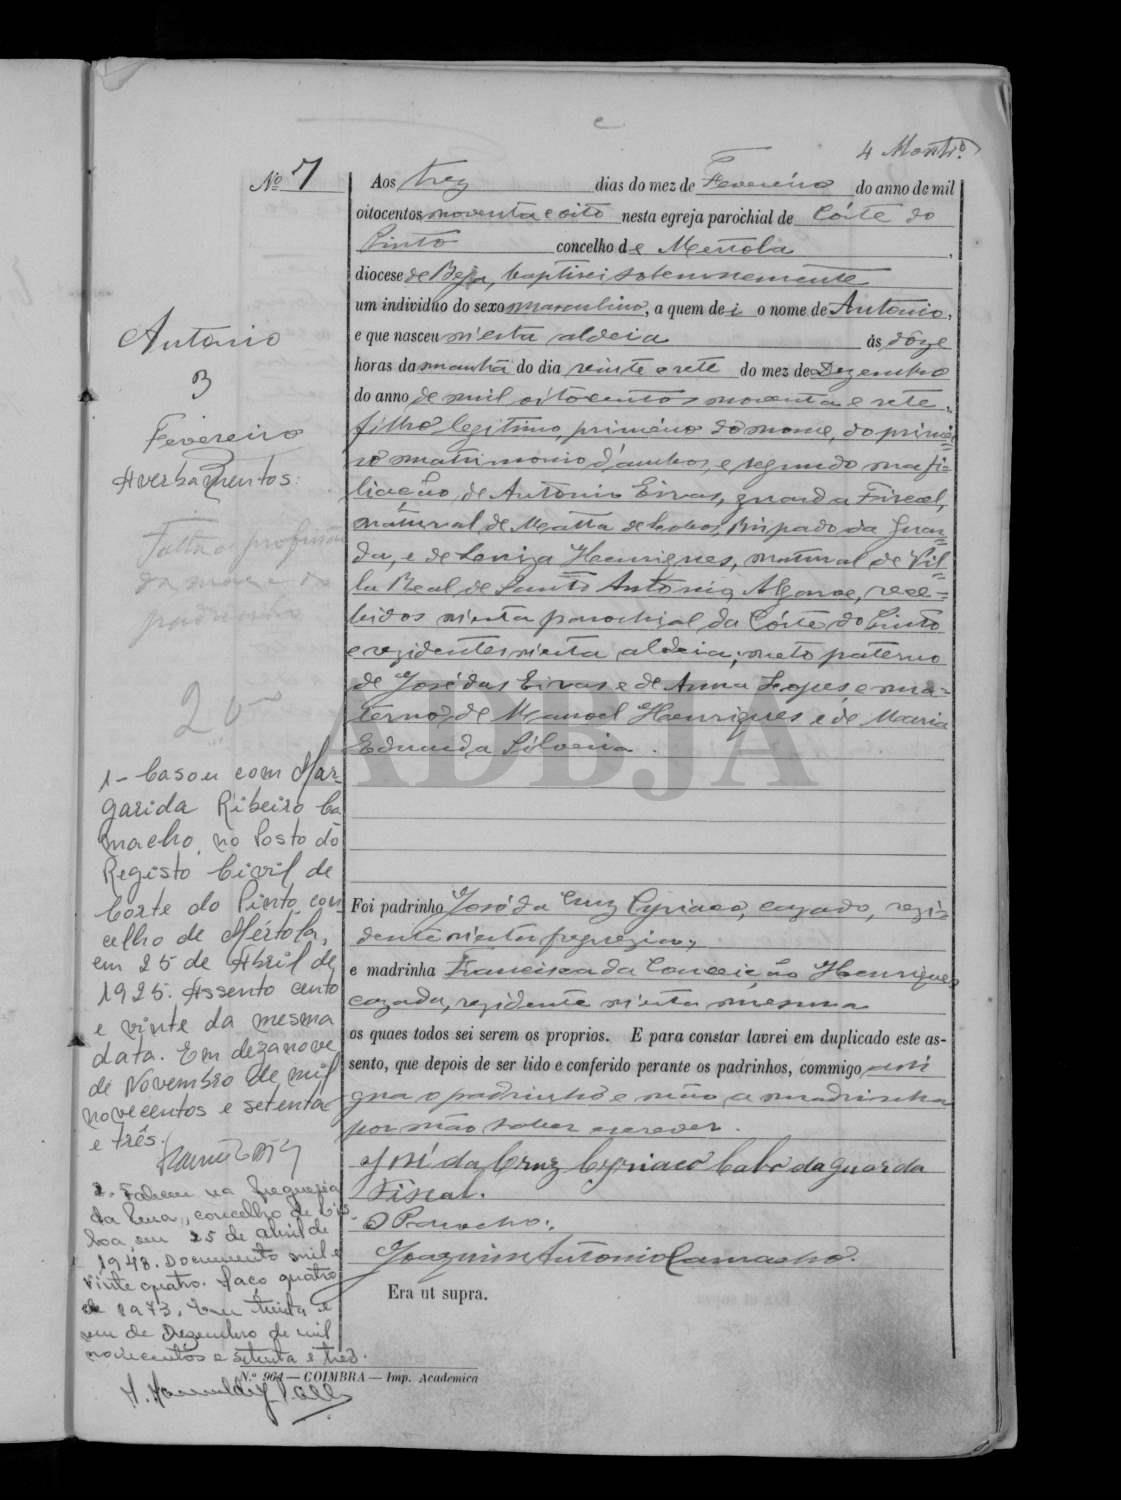 4 Montrº
Nº 7
Aos trez dias do mez de Fevereiro do anno de mil
oitocentos noventa e oito nesta egreja parochial de Córte do
Pinto concelho de Mertola,
diocese de Beja, baptisei solemnemente
um individuo do sexo masculino, a quem dei o nome de Antonio,
e que nasceu n'esta aldeia ás dôze
horas da manhã do dia vinte e sete do mez de Dezembro
do anno de mil oitocentos noventa e sete,
filho legitimo, primeiro do nome, do primei=
ro matrimonio d'ambos, e segundo na fi=
liação, de Antonio Eiras, guarda Fiscal,
natural de Matta de Lobos, Bispado da Guar=
da, e de Luiza Henriques, natural de Vil=
la Real de Santo Antonio, Algarve, rece=
bidos n'esta parochial da Córte do Pinto
e rezidentes n'esta aldeia; neto paterno
de José das Eiras e de Anna Lopes, e ma=
terno, de Manoel Henriques e de Maria
Eduarda Silveira.
Foi padrinho José da Cruz Cyriaco, cazado, rezi=
dente n'esta freguezia,
e madrinha Francisca da Conceição Henriques
cazada, rezidente n'esta mesma
os quaes todos sei serem os proprios. E para constar lavrei em duplicado este as-
sento, que depois de ser lido e conferido perante os padrinhos, commigo assi
gna o padrinho e não a madrinha
por não saber escrever.
José da Cruz Cyriaco Cabo da Guarda
Fiscal.
O Parocho:
Joaquim Antonio Camacho.
Era ut supra.
Antonio
3
Fevereiro
Averbamentos:
Falta a profissão
da mãe e do
padrinho
1- Casou com Mar-
garida Ribeiro Ca
macho, no Posto do
Registo Civil de
Corte do Pinto, con-
celho de Mértola,
em 25 de Abril de
1925. Assento cento
e vinte da mesma
data. Em dezanove
de Novembro de mil
novecentos e setenta
e três.
2. Faleceu na freguesia
da Pena, concelho de Lis-
boa, em 25 de abril de
1948. Documento mil e
vinte quatro. Maço quatro
de 1973. Em trinta e
um de Dezembro de mil
novecentos e setenta e três.
N.º 904 — COIMBRA — Imp. Academica
ADBJA